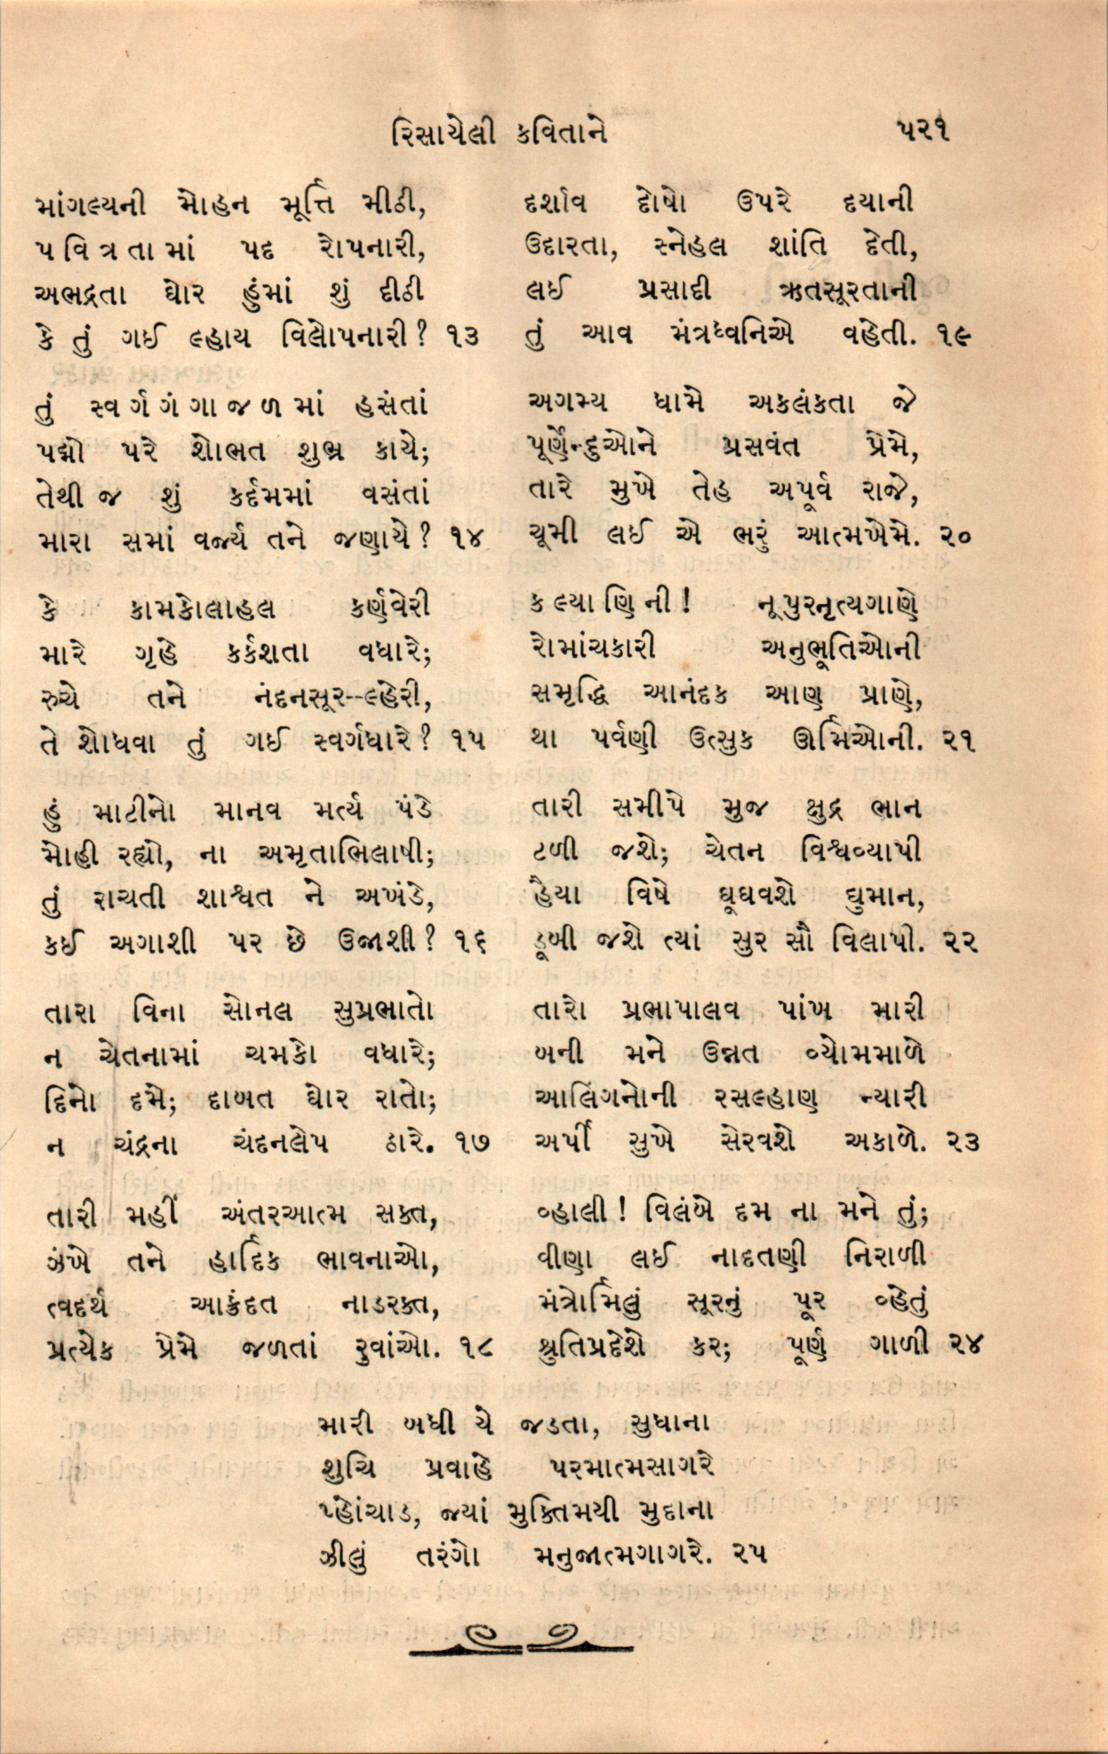 રિસાયેલી કવિતાને ૫૨૧
માંગલ્યની મોહન મૂર્ત્તિ મીઠી,
પવિત્રતામાં પદ રોપનારી,
અભદ્રતા ઘોર હુંમાં શું દીઠી
કે તું ગઈ લ્હાય વિલોપનારી? ૧૩
તું સ્વર્ગગંગાજળમાં હસંતાં
પદ્મો પરે શોભત શુભ્ર કાયે;
તેથી જ શું કર્દમમાં વસંતાં
મારા સમાં વર્જ્ય તને જણાયે? ૧૪
કે કામકોલાહલ કર્ણવેરી
મારે ગૃહે કર્કશતા વધારે;
રુચે તને નંદનસૂર--લ્હેરી,
તે શોધવા તું ગઈ સ્વર્ગધારે? ૧૫
હું માટીનો માનવ મર્ત્ય પંડે
મોહી રહ્યો, ના અમૃતાભિલાષી;
તું રાચતી શાશ્વત ને અખંડે,
કઈ અગાશી પર છે ઉજાશી? ૧૬
તારા વિના સોનલ સુપ્રભાતો
ન ચેતનામાં ચમકો વધારે;
દિનો દમે; દાબત ઘોર રાતો;
ન ચંદ્રના ચંદનલેપ ઠારે. ૧૭
તારી મહીં અંતરઆત્મ સક્ત,
ઝંખે તને હાર્દિક ભાવનાઓ,
ત્વદર્થ આક્રંદત નાડરક્ત,
પ્રત્યેક પ્રેમે જળતાં રુવાંઓ. ૧૮
દર્શાવ દોષો ઉપરે દયાની
ઉદારતા, સ્નેહલ શાંતિ દેતી,
લઈ પ્રસાદી ઋતસૂરતાની
તું આવ મંત્રધ્વનિએ વહેતી. ૧૯
અગમ્ય ધામે અકલંકતા જે
પૂર્ણેન્દુઓને પ્રસવંત પ્રેમે,
તારે મુખે તેહ અપૂર્વ રાજે,
ચૂમી લઈ એ ભરું આત્મખેમે. ૨૦
કલ્યાણિની! નૂપુરનૃત્યગાણે
રોમાંચકારી અનુભૂતિઓની
સમૃદ્ધિ આનંદક આણ પ્રાણે,
થા પર્વણી ઉત્સુક ઊર્મિઓની. ૨૧
તારી સમીપે મુજ ક્ષુદ્ર ભાન
ટળી જશે; ચેતન વિશ્વવ્યાપી
હૈયા વિષે ઘૂઘવશે ઘુમાન,
ડૂબી જશે ત્યાં સુર સૌ વિલાપી. ૨૨
તારો પ્રભાપાલવ પાંખ મારી
બની મને ઉન્નત વ્યોમમાળે
આલિંગનોની રસલ્હાણ ન્યારી
અર્પી સુખે સેરવશે અકાળે. ૨૩
વ્હાલી! વિલંબે દમ ના મને તું;
વીણા લઈ નાદતણી નિરાળી
મંત્રોર્મિલું સૂરનું પૂર વ્હેતું
શ્રુતિપ્રદેશે કર; પૂર્ણ ગાળી ૨૪
મારી બધી યે જડતા, સુધાના
શુચિ પ્રવાહે પરમાત્મસાગરે
પ્હોંચાડ, જ્યાં મુક્તિમયી મુદાના
ઝીલું તરંગો મનુજાત્મગાગરે. ૨૫